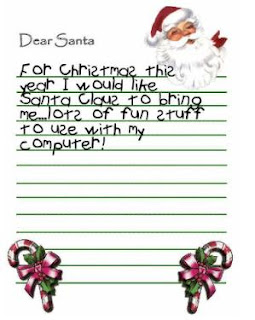 Dear Santa
For Christmas this
year I would like
Santa Claus to bring
me...lots of fun stuff
to use with my
computer!